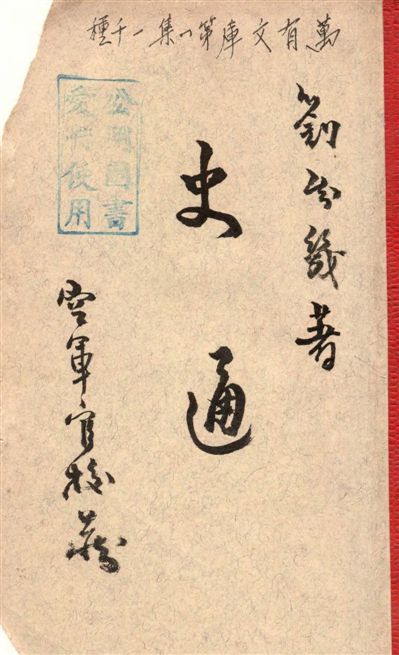 萬有文庫第一集一千種
劉知幾著
史通
圖書
愛使用
空軍官校藏